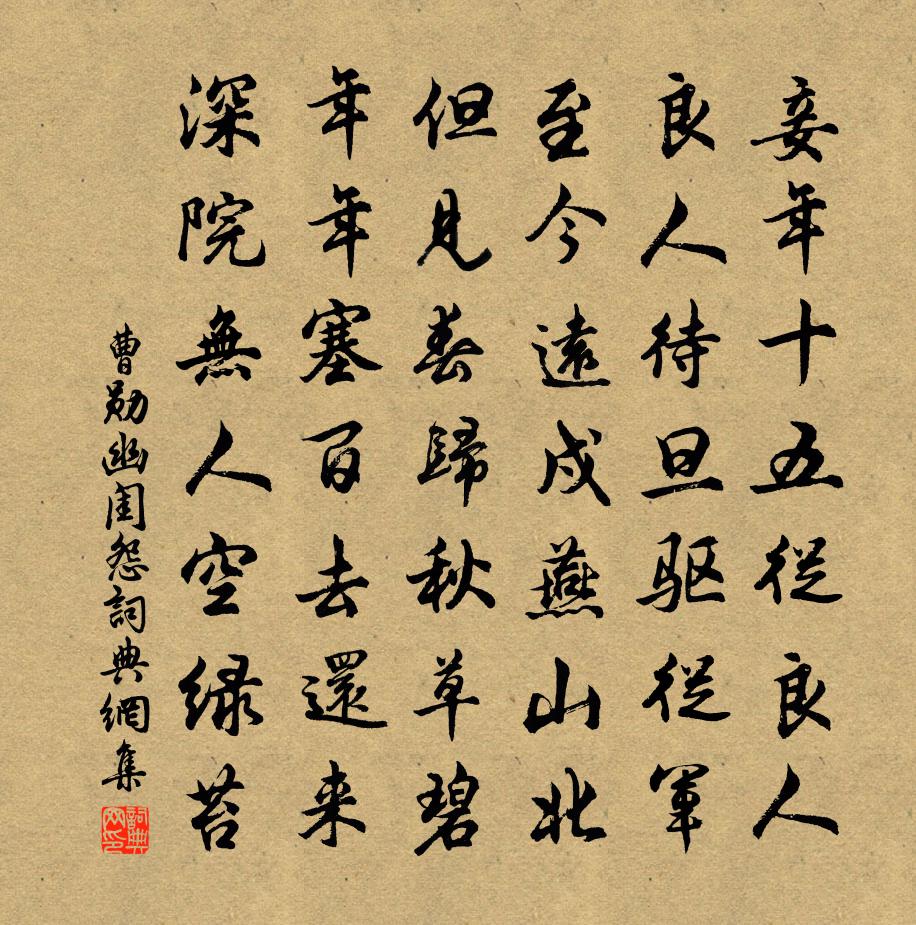 妾年十五從良人
良人待旦驱從軍
至今遠戍燕山北
但見春歸秋草碧
年年塞百去還来
深院無人空緑苔
曹勛幽閨怨詞典網集
詞典网印